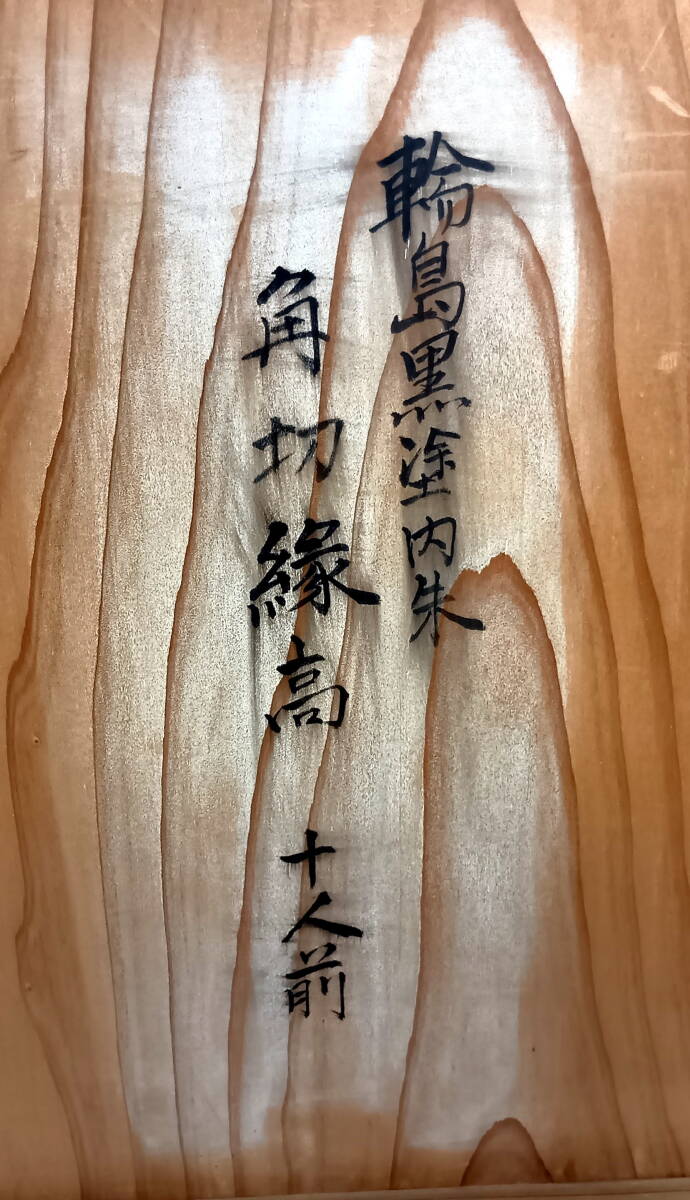 輪島黒塗内朱
角切縁高 十人前